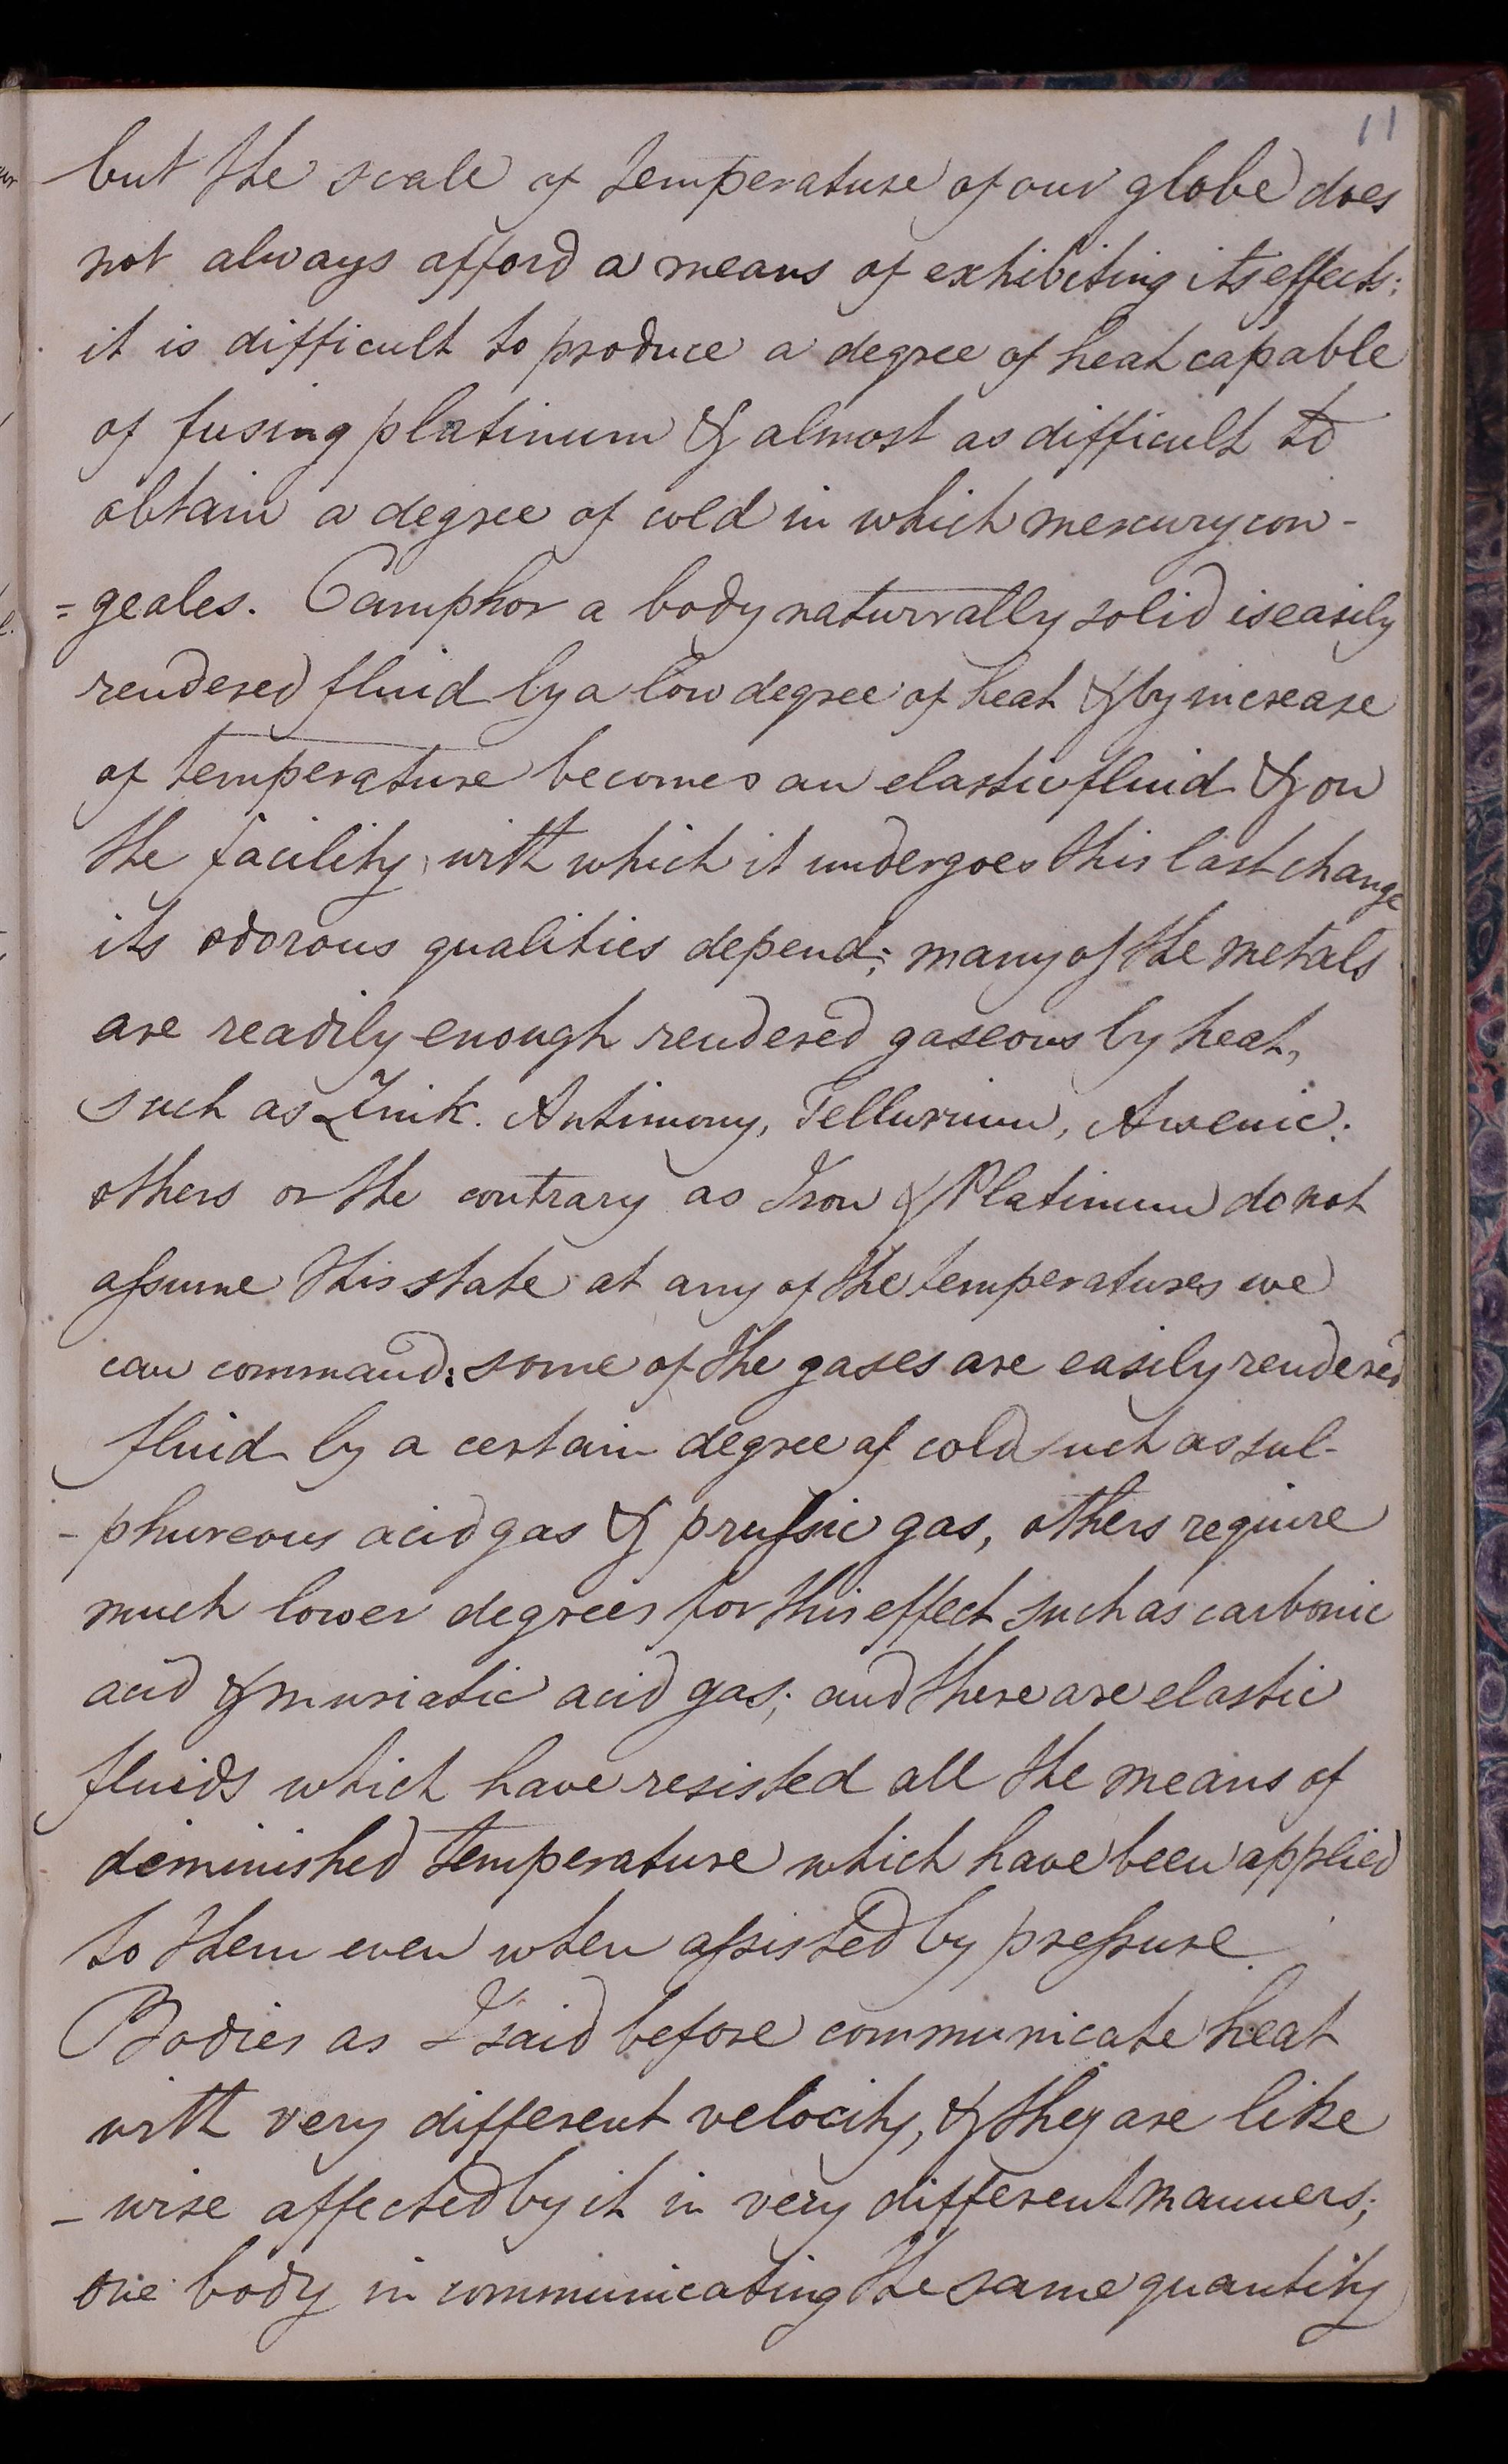 11
but the scale of temperature of our globe does
not always afford a means of exhibiting its effects:
it is difficult to produce a degree of heat capable
of fusing platinum & almost as difficult to
obtain a degree of cold in which mercury con-
=geales. Camphor a body naturrally solid is easily
rendered fluid by a low degree of heat & by increase
of temperature becomes an elastic fluid & on
the facility with which it undergoes this last change
its odorous qualities depend; many of the metals
are readily enough rendered gaseous by heat,
such as Zink. Antimony, Tellurium, Arsenic:
others on the contrary as Iron & Platinum do not
aſsume this state at any of the temperatures we
can command: some of the gases are easily rendered
fluid by a certain degree of cold such as sul-
-phureous acid gas & pruſsic gas, others require
much lower degrees for this effect such as carbonic
acid & muriatic acid gas; and there are elastic
fluids which have resisted all the means of
diminished temperature which have been applied
to them even when aſsisted by preſsure
Bodies as I said before communicate heat
with very different velocity, & they are like
-wise affected by it in very different manners;
one body in communicating the same quantity